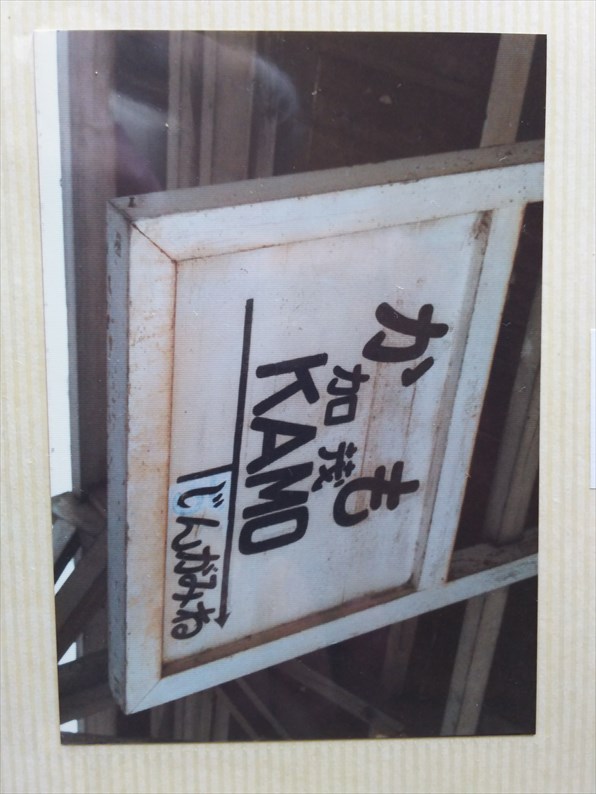 かも
加茂
KAMO
じんがみね